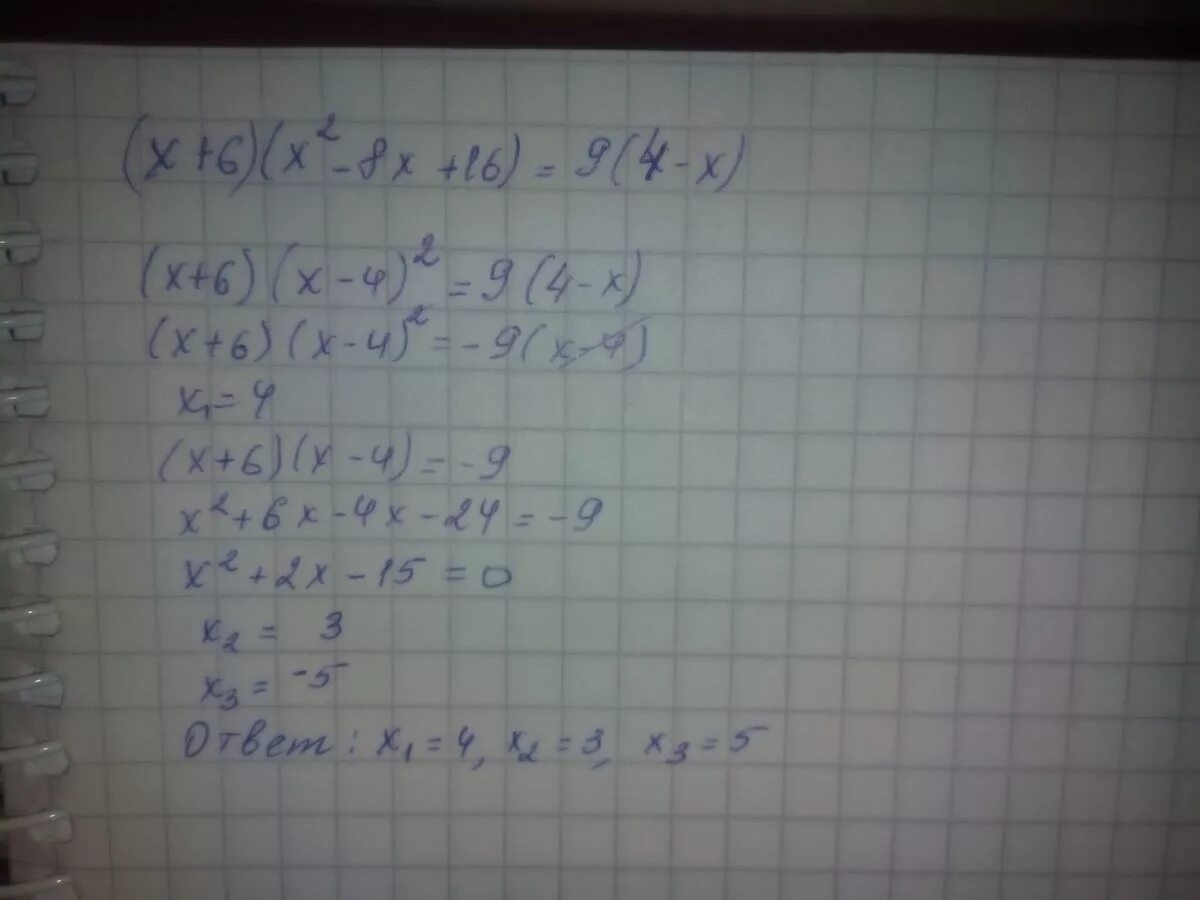 (x+6)(x²-8x+16)=9(4-x)
(x+6)(x-4)²=9(4-x)
(x+6)(x-4)²=-9(x-4)
x₁=4
(x+6)(x-4)=-9
x²+6x-4x-24=-9
x²+2x-15=0
x₂= 3
x₃= -5
Ответ: x₁=4, x₂=3, x₃=5